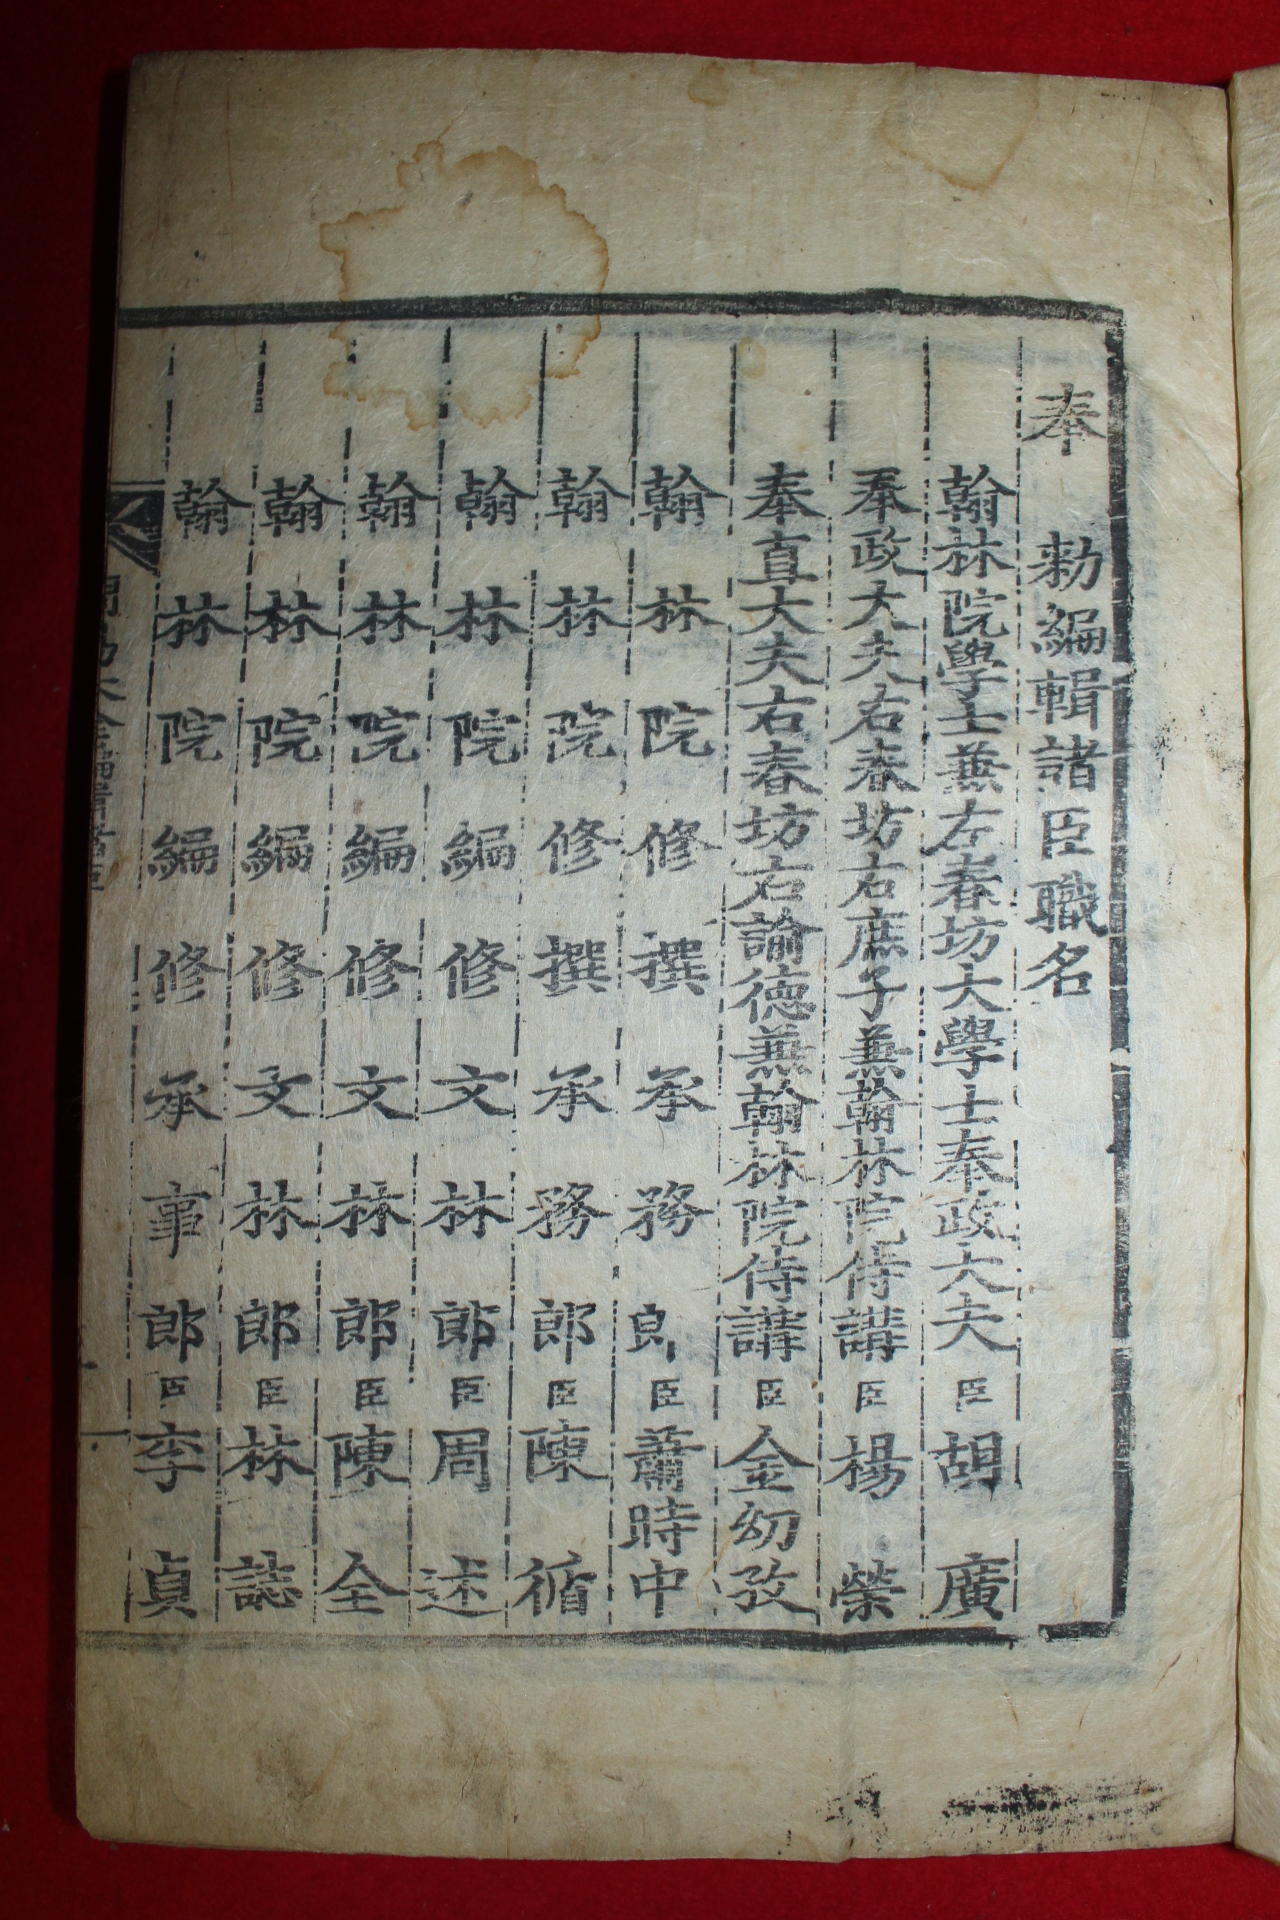 奉　勑編輯諸臣職名
翰林院學士兼左春坊大學士奉政大夫臣胡廣
奉政大夫右春坊右庶子兼翰林院侍講臣楊榮
奉直大夫右春坊右諭德兼翰林院侍講臣金幼孜
翰林院修撰承務郎臣蕭時中
翰林院修撰承務郎臣陳循
翰林院編修文林郎臣周述
翰林院編修文林郎臣陳全
翰林院編修文林郎臣林誌
翰林院編修承事郎臣李貞
一